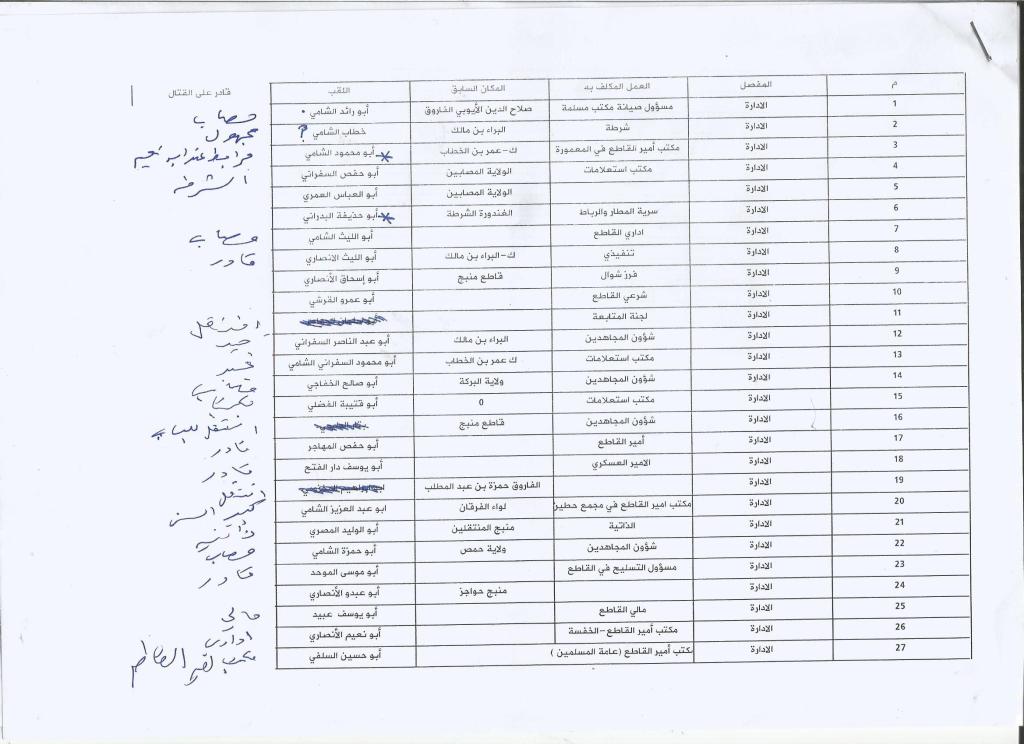 م المفصل العمل المكلف به المكان السابق اللقب قادر على القتال
1 الادارة مسؤول صيانة مكتب مسلمة صلاح الدين الأيوبي الفاروق أبو رائد الشامي مصاب
2 الادارة شرطة البراء بن مالك خطاب الشامي ? مجهول
3 الادارة مكتب أمير القاطع في المعمورة ك-عمر بن الخطاب أبو محمود الشامي مرابط عند ابو نعيم
4 الادارة مكتب استعلامات الولاية المصابين أبو حفص السفراني
5 الادارة الولاية المصابين أبو العباس العمري
6 الادارة سرية المطار والرباط الغندورة الشرطة أبو حذيفة البدراني
7 الادارة اداري القاطع أبو الليث الشامي مصاب
8 الادارة تنفيذي ك-البراء بن مالك أبو الليث الانصاري قادر
9 الادارة فرز شوال قاطع منبج أبو إسحاق الأنصاري
10 الادارة شرعي القاطع أبو عمرو القرشي
11 الادارة لجنة المتابعة
12 الادارة شؤون المجاهدين البراء بن مالك أبو عبد الناصر السفراني جيد
13 الادارة مكتب استعلامات ك عمر بن الخطاب أبو محمود السفراني الشامي
14 الادارة شؤون المجاهدين ولاية البركة أبو صالح الخفاجي
15 الادارة مكتب استعلامات 0 أبو قتيبة الفضلي
16 الادارة شؤون المجاهدين قاطع منبج انتقل للباب
17 الادارة أمير القاطع أبو حفص المهاجر قادر
18 الادارة الامير العسكري أبو يوسف دار الفتح قادر
19 الادارة الفاروق حمزة بن عبد المطلب انتقل
20 الادارة مكتب امير القاطع في مجمع حطين لواء الفرقان ابو عبد العزيز الشامي كبير السن
21 الادارة الذاتية منبج المنتقلين أبو الوليد المصري ذاتية
22 الادارة شؤون المجاهدين ولاية حمص أبو حمزة الشامي مصاب
23 الادارة مسؤول التسليح في القاطع أبو موسى الموحد قادر
24 الادارة منبج حواجز أبو عبدو الأنصاري
25 الادارة مالي القاطع أبو يوسف عبيد مالي
26 الادارة مكتب أمير القاطع-الخفسة أبو نعيم الأنصاري اداري
27 الادارة مكتب أمير القاطع (عامة المسلمين ) أبو حسين السلفي